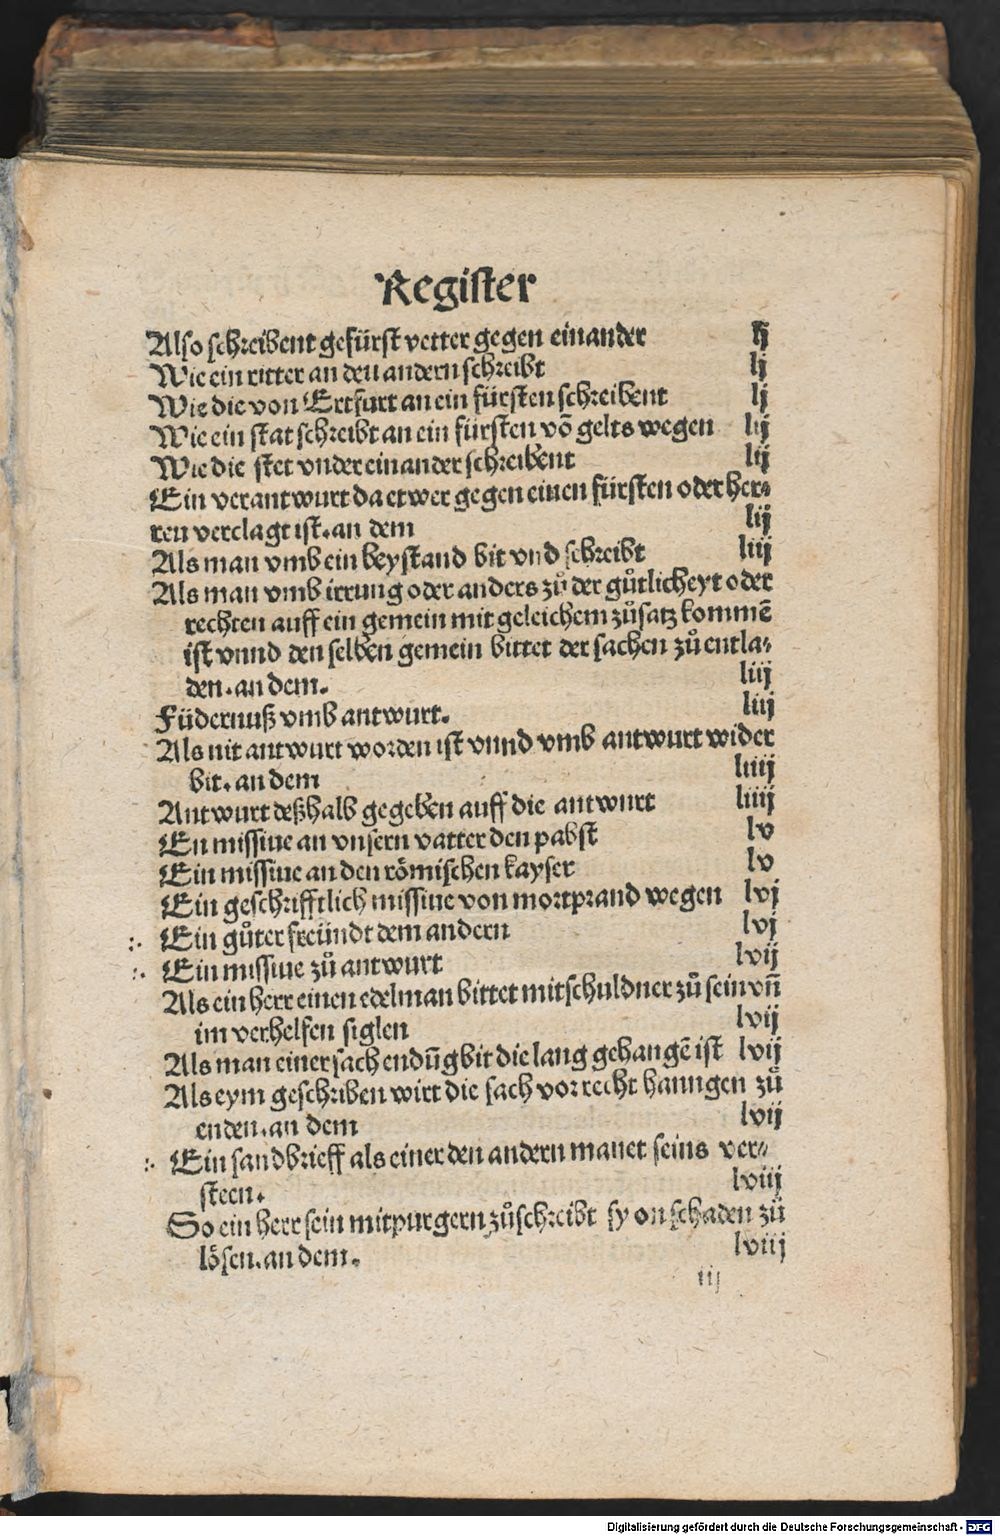 Register
Also schreibent gefürst vetter gegen einander lj
Wie ein ritter an den andern schreibt lj
Wie die von Ertfurt an ein fürsten schreibent lj
Wie ein stat schreibt an ein fürsten võ gelts wegen lij
Wie die stet vnder einander schreibent lij
Ein verantwurt da etwer gegen einen fürsten oder her⸗
ren verclagt ist. an dem lij
Als man vmb ein beystand bit vnd schreibt liij
Als man vmb irrung oder anders zů der gůtlicheyt oder
rechten auff ein gemein mit geleichem zůsatz kommē
ist vnnd den selben gemein bittet der sachen zů entla⸗
den. an dem. liij
Füdernuß vmb antwurt. liij
Als nit antwurt worden ist vnnd vmb antwurt wider
bit. an dem liiij
Antwurt deßhalb gegeben auff die antwurt liiij
En missiue an vnsern vatter den pabst lv
Ein missiue an den römischen kayser lv
Ein geschrifftlich missiue von mortprand wegen lvj
:. Ein gůter freündt dem andern lvj
:. Ein missiue zů antwurt lvij
Als ein herr einen edelman bittet mitschuldner zů sein vñ
im verhelfen siglen lvij
Als man einer sach endūg bit die lang gehangē ist lvij
Als eym geschriben wirt die sach vor recht hanngen zů
enden. an dem lvij
:. Ein sandbrieff als einer den andern manet seins ver⸗
steen. lviij
So ein herr sein mitpurgern zůschreibt sy on schaden zů
lösen. an dem. lviij
iij
Digitalisierung gefördert durch die Deutsche Forschungsgemeinschaft - DFG